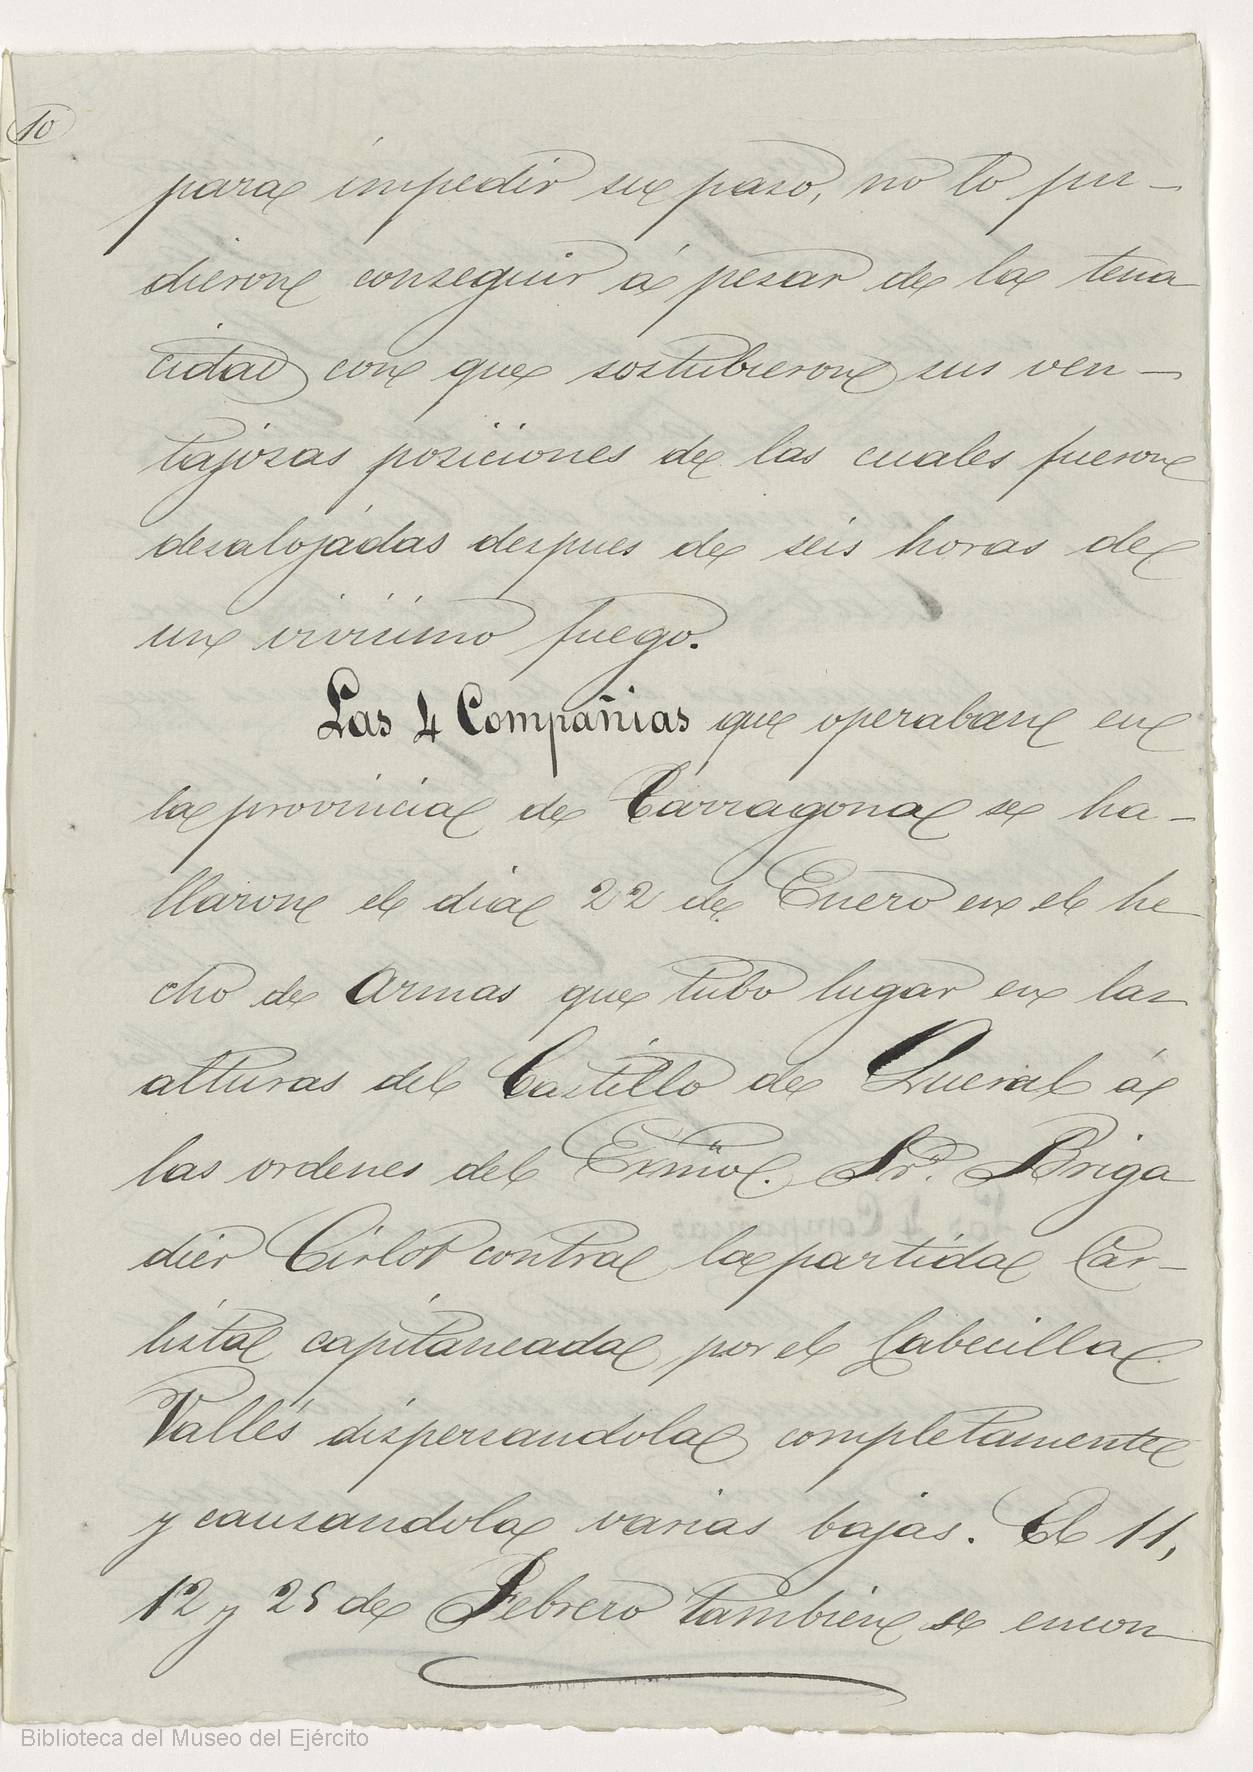 10
para impedir su paso, no lo pu-
dieron conseguir á pesar de la tena
cidad con que sostubieron sus ven-
tajosas posiciones de las cuales fueron
desalojádas despues de seis horas de
un vivisimo fuego.
Las 4 Compañias que operaban en
la provincia de Tarragona se ha-
llaron el dia 22 de Enero en el he
cho de Armas que tubo lugar en las
alturas del Castillo de Queral á
las ordenes del Exmo. Sr. Briga
dier Cirlot contra la partida Car-
lista capitaneada por el Cabecilla
Vallés dispersandola completamente
y causandola varias bajas. El 11,
12 y 25 de Febrero tambien se encon
Biblioteca del Museo del Ejército